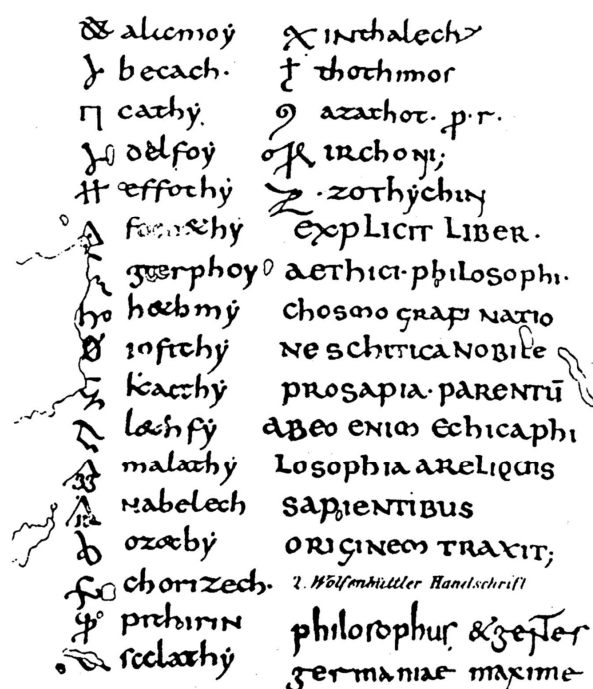 alicmoẏ
becach·
cathẏ
delfoẏ
effothẏ
hẏ
gterphoy
hœbmẏ
infithẏ
kaithẏ
lœhfẏ
malathẏ
nabelech
ozœbẏ
chorizech·
pithirin
scclathẏ
inthalech
thothimos
azathot· p· r·
irchoni;
·zothẏchin
explicit liber·
aethici· philosophi·
chosmo graf natio
ne schiticanobile
prosapia· parentū
abeo enim ethicaphi
losophia areliquis
sapientibus
originem traxit;
2. Wolfenbüttler Handschrift
philosophus &
germaniae maxime